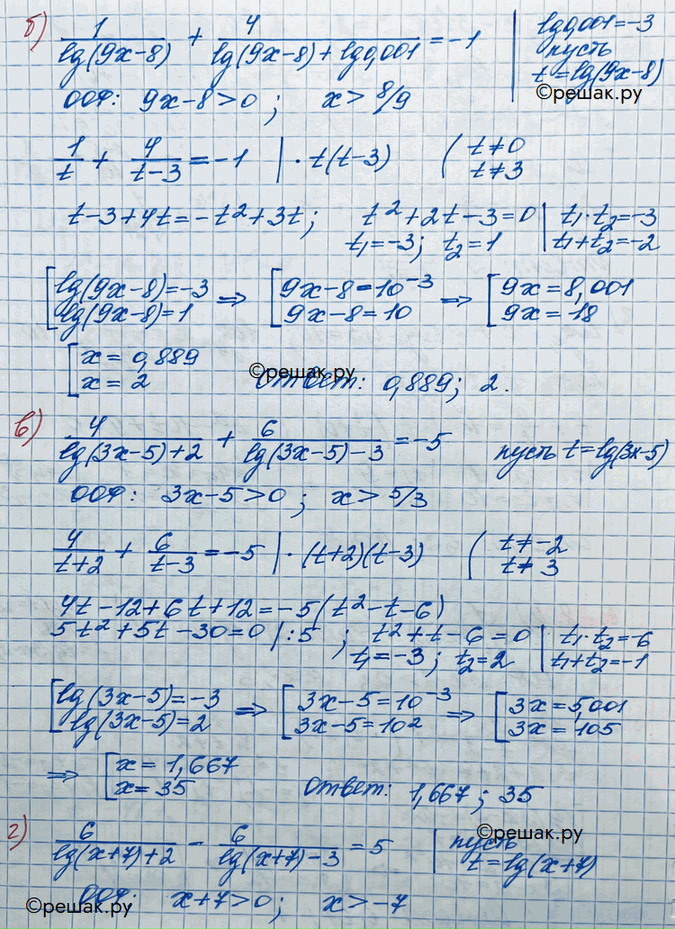 б) 1/lg(9x-8) + 4/(lg(9x-8)+lg0,001) = -1 | lg0,001=-3
пусть
t=lg(9x-8)
©решак.ру
ООФ: 9x-8>0; x>8/9
1/t + 4/(t-3) = -1 | · t(t-3) ( t≠0
t≠3
t-3+4t=-t²+3t; t²+2t-3=0 | t₁·t₂=-3
t₁=-3; t₂=1 | t₁+t₂=-2
[ lg(9x-8)=-3 ⇒ [ 9x-8=10⁻³ ⇒ [ 9x=8,001
lg(9x-8)=1 9x-8=10 9x=18
[ x=0,889
x=2
©решак.ру
ответ: 0,889; 2.
в) 4/(lg(3x-5)+2) + 6/(lg(3x-5)-3) = -5 пусть t=lg(3x-5)
ООФ: 3x-5>0; x>5/3
4/(t+2) + 6/(t-3) = -5 | · (t+2)(t-3) ( t≠-2
t≠3
4t-12+6t+12=-5(t²-t-6)
5t²+5t-30=0 |:5 ; t²+t-6=0 | t₁·t₂=-6
t₁=-3; t₂=2 | t₁+t₂=-1
[ lg(3x-5)=-3 ⇒ [ 3x-5=10⁻³ ⇒ [ 3x=5,001
lg(3x-5)=2 3x-5=10² 3x=105
⇒ [ x=1,667
x=35 ответ: 1,667; 35
г) 6/(lg(x+7)+2) - 6/(lg(x+7)-3) = 5 | пусть
t=lg(x+7)
©решак.ру
ООФ: x+7>0; x>-7
©решак.ру